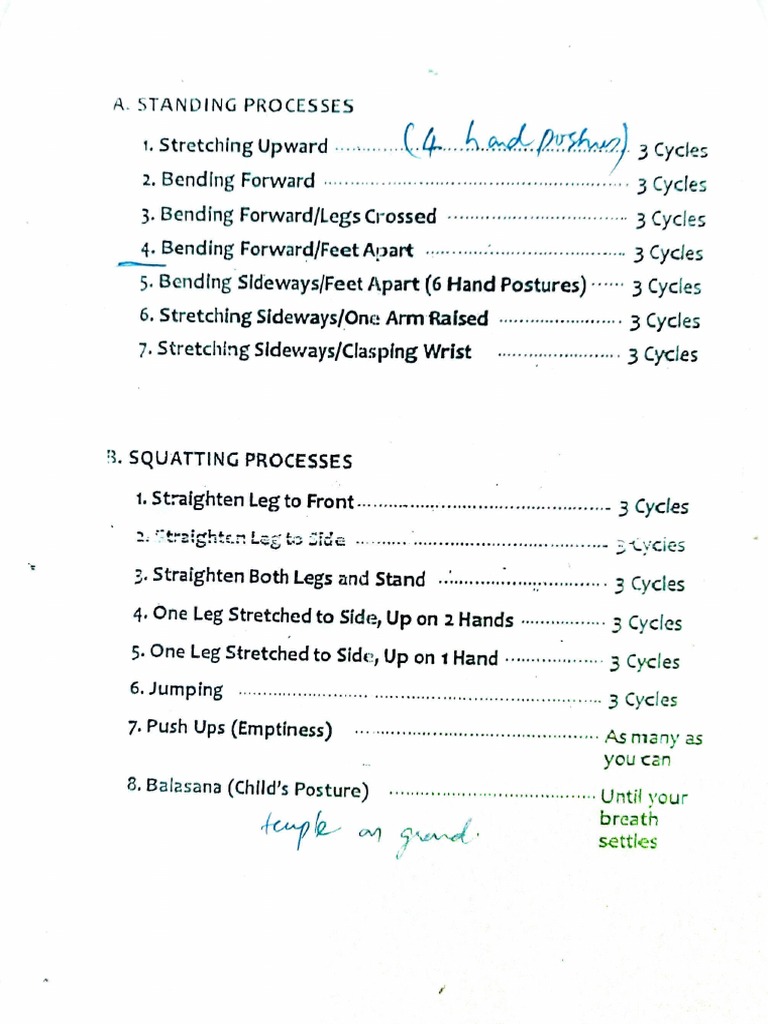 A. STANDING PROCESSES
1. Stretching Upward ................(4 hand postures) 3 Cycles
2. Bending Forward ........................................ 3 Cycles
3. Bending Forward/Legs Crossed ........................ 3 Cycles
4. Bending Forward/Feet Apart ........................... 3 Cycles
5. Bending Sideways/Feet Apart (6 Hand Postures) ...... 3 Cycles
6. Stretching Sideways/One Arm Raised ................ 3 Cycles
7. Stretching Sideways/Clasping Wrist ................ 3 Cycles
B. SQUATTING PROCESSES
1. Straighten Leg to Front................................ 3 Cycles
2. Straighten Leg to Side ................................ 3 Cycles
3. Straighten Both Legs and Stand ...................... 3 Cycles
4. One Leg Stretched to Side, Up on 2 Hands ............ 3 Cycles
5. One Leg Stretched to Side, Up on 1 Hand ............. 3 Cycles
6. Jumping ................................................ 3 Cycles
7. Push Ups (Emptiness) .................................. As many as
you can
8. Balasana (Child's Posture) ............................ Until your
breath
settles
temple on ground.